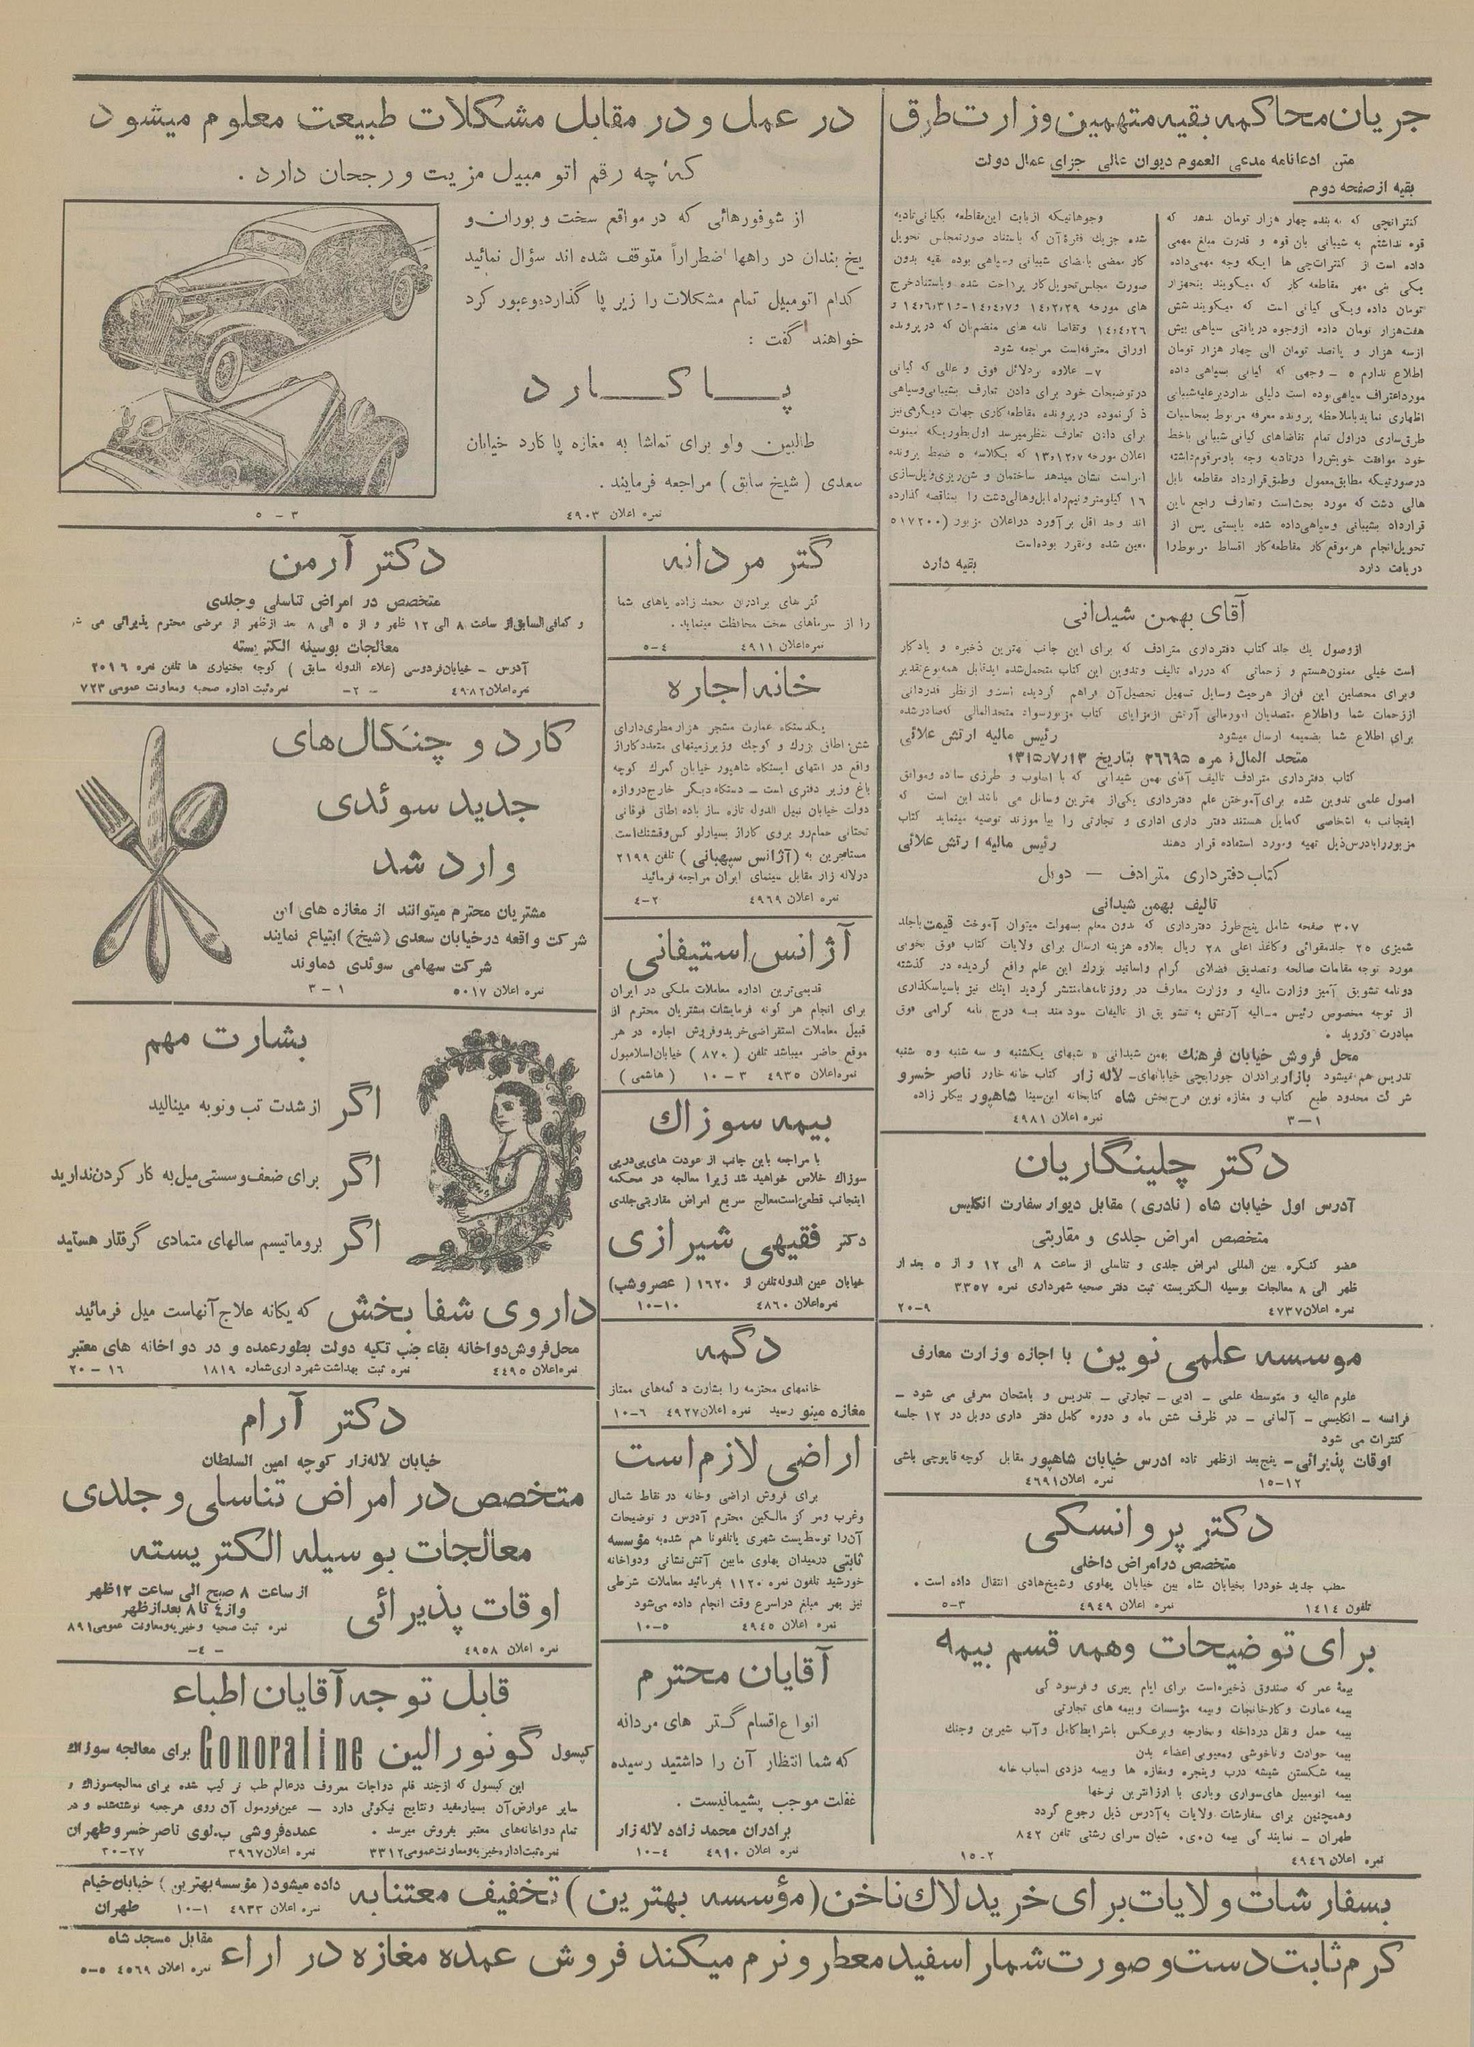 جریان محاکمه بقیه متهمین وزارت طرق
متن ادعانامه مدعی العموم دیوان عالی جزای عمال دولت
بقیه از صفحه دوم
قوه نداشتم به شیبانی بان قوه و قدرت مبلغ مهمی
داده است از کنتراتچی ها اینکه وجه مهمی داده
یکی بنی مهر مقاطعه کار که میگویند پنجهزار
تومان داده ویکی کیانی است که میگویند شش
هفت هزار تومان داده ازوجوه دریافتی سیاهی بیش
ازسه هزار و پانصد تومان الی چهار هزار تومان
اطلاع ندارم ۵ ـ وجهی که کیانی بسیاهی داده
خود موافقت خویش را درتادیه وجه باو مرقوم داشته
درصورتیکه مطابق معمول وطبق قرارداد مقاطعه بابل
هالی دشت که مورد بحث است وتعارف راجع باین
قرارداد بشیبانی وسیاهی داده شده بایستی پس از
تحویل انجام هر موقع کار مقاطعه کار اقساط مربوط را
دریافت دارد
وجوهاتیکه ازبابت این مقاطعه بکیانی تادیه
شده جزیک فقره آن که باستناد صورتمجلس تحویل
کار ممضی بامضای شیبانی وسیاهی بوده بقیه بدون
صورت مجلس تحویل کار پرداخت شده وباستناد خرج
اوراق معترفه است مراجعه شود
۷ـ علاوه بردلائل فوق و عللی که کیانی
درتوضیحات خود برای دادن تعارف بشیبانی وسیاهی
ذکر نموده درپرونده مقاطعه کاری جهات دیگری نیز
برای دادن تعارف بنظر میرسد اول بطوریکه مبنوت
اعلان مورخه ۱۳،۱۲،۷ که بکلاسه ۵ ضبط پرونده
۱۶ کیلومتر ونیم راه بابل وهالی دشت را بمناقصه گذارده
اند وحد اقل برآورد دراعلان مزبور (۵۱۷۲۰۰
معین شده ومقرر بوده است
بقیه دارد
آقای بهمن شیدانی
ازوصول یك جلد کتاب دفترداری مترادف که برای این جانب بهترین ذخیره و یادکار
است خیلی ممنون هستم و زحماتی که درراه تالیف وتدوین این کتاب متحمل شده اید قابل همه نوع تقدیر
وبرای محصلین این فن از هرحیث وسایل تسهیل تحصیل آن فراهم گردیده است و ازنظر قدردانی
اززحمات شما واطلاع متصدیان امور مالی آرتش ازمزایای کتاب مزبور سواد متحدالمالی که صادر شده
برای اطلاع شما بضمیمه ارسال میشود رئیس مالیه ارتش علائی
متحد المال نمره ۲۶۶۹۵ بتاریخ ۱۳۱۵٫۷٫۱۳
کتاب دفترداری مترادف تالیف آقای بهمن شیدانی که با اسلوب و طرزی ساده وموافق
اصول علمی تدوین شده برای آموختن علم دفترداری یکی از بهترین وسائل می باشد این است که
اینجانب به اشخاصی که مایل هستند دفتر داری اداری و تجارتی را بیاموزند توصیه مینماید کتاب
مزبور را بادرس ذیل تهیه ومورد استفاده قرار دهند رئیس مالیه ارتش علائی
کتاب دفترداری مترادف — دوبل
تالیف بهمن شیدانی
۳۰۷ صفحه شامل پنج طرز دفترداری که بدون معلم بسهولت میتوان آموخت قیمت باجلد
شمیزی ۲۵ جلد مقوائی وکاغذ اعلی ۲۸ ریال بعلاوه هزینه ارسال برای ولایات کتاب فوق بخوبی
مورد توجه مقامات صالحه وتصدیق فضلای گرام واساتید بزرك این علم واقع گردیده در گذشته
دونامه تشویق آمیز وزارت مالیه و وزارت معارف در روزنامه ها منتشر گردید اینك نیز باسپاسگذاری
از توجه مخصوص رئیس مالیه آرتش به تشویق از تالیفات سودمند بـه درج نامه گرامی فوق
مبادرت ورزید .
محل فروش خیابان فرهنك بهمن شیدانی « شبهای یکشنبه و سه شنبه و۵ شنبه
تدریس هم میشود بازار برادران جورابچی خیابانهای- لاله زار کتاب خانه خاور ناصر خسرو
شرکت محدود طبع کتاب و مغازه نوین فرح بخش شاه کتابخانه ابن سینا شاهپور بیکلر زاده
۳-۱ نمره اعلان ۴۹۸۱
دکتر چلینگاریان
آدرس اول خیابان شاه (نادری) مقابل دیوار سفارت انگلیس
متخصص امراض جلدی و مقاربتی
عضو کنگره بین المللی امراض جلدی و تناسلی از ساعت ۸ الی ۱۲ و از ۵ بعد از
ظهر الی ۸ معالجات بوسیله الکتریسته ثبت دفتر صحیه شهرداری نمره ۳۳۵۷
نمره اعلان ۴۷۳۷ ۲۰-۹
موسسه علمی نوین با اجازه وزارت معارف
علوم عالیه و متوسطه علمی ـ ادبی ـ تجارتی ـ تدریس و بامتحان معرفی می شود ـ
فرانسه ـ انگلیسی ـ آلمانی ـ در ظرف شش ماه و دوره کامل دفتر داری دوبل در ۱۲ جلسه
کنترات می شود
اوقات پذیرائی- پنج بعد ازظهر تاده ادرس خیابان شاهپور مقابل کوچه قاپوچی باشی
۱۵-۱۲ نمره اعلان ۴۶۹۱
دکتر پروانسکی
متخصص درامراض داخلی
مطب جدید خودرا بخیابان شاه بین خیابان پهلوی وشیخ هادی انتقال داده است .
تلفون ۱۴۱۴ نمره اعلان ۴۹۴۹ ۵-۳
برای توضیحات وهمه قسم بیمه
بیمه عمر که صندوق ذخیره است برای ایام پیری و فرسودگی
بیمه عمارت وکارخانجات وبیمه مؤسسات وبیمه های تجارتی
بیمه حمل ونقل درداخله وخارجه وبرعکس باشرایط کامل وآب شیرین وجنك
بیمه حوادث وناخوشی ومعیوبی اعضاء بدن
بیمه شکستن شیشه درب وپنجره ومغازه ها وبیمه دزدی اسباب خانه
بیمه اتومبیل های سواری وباری با ارزانترین نرخها
وهمچنین برای سفارشات ولایات به آدرس ذیل رجوع گردد
طهران ـ نمایندگی بیمه ن.ی. شبان سرای رشتی تلفن ۸۴۲
نمره اعلان ۴۹۴۶ ۱۵-۲
در عمل و در مقابل مشکلات طبیعت معلوم میشود
که چه رقم اتومبیل مزیت و رجحان دارد .
از شوفورهائی که در مواقع سخت و بوران و
یخ بندان در راهها اضطراراً متوقف شده اند سؤال نمائید
کدام اتومبیل تمام مشکلات را زیر پا گذارده وعبور کرد
خواهند گفت :
پـاکـارد
طالبین ولو برای تماشا به مغازه پاکارد خیابان
سعدی (شیخ سابق) مراجعه فرمایند .
نمره اعلان ۴۹۰۳ ۵-۳
گتر مردانه
گتر های برادران محمد زاده پاهای شما
را از سرماهای سخت محافظت مینماید .
نمره اعلان ۴۹۱۱ ۵-۴
خانه اجاره
یکدستگاه عمارت مشجر هزار مطری دارای
شش اطاق بزرك و کوچك وزیرزمینهای متعدد کاراژ
واقع در انتهای ایستگاه شاهپور خیابان گمرك کوچه
باغ وزیر دفتری است ـ دستگاه دیگر خارج دروازه
دولت خیابان نبیل الدوله تازه ساز باده اطاق فوقانی
تحتانی حمام رو بروی کاراژ بسیار لوکس وقشنك است
مستاجرین به (آژانس سپهبانی) تلفن ۲۱۹۹
درلاله زار مقابل سینمای ایران مراجعه فرمائید
نمره اعلان ۴۹۶۹ ۴-۲
آژانس استیفانی
قدیمی ترین اداره معاملات ملکی در ایران
برای انجام هر گونه فرمایشات مشتریان محترم از
قبیل معاملات استقراضی خرید وفروش اجاره در هر
موقع حاضر میباشد تلفن (۸۷۰) خیابان اسلامبول
نمره اعلان ۴۹۳۵ ۱۰-۳ (هاشمی)
بیمه سوزاك
با مراجعه باین جانب از عودت های پی در پی
سوزاك خلاص خواهید شد زیرا معالجه در محکمه
اینجانب قطعی است معالج سریع امراض مقاربتی جلدی
دکتر فقیهی شیرازی
خیابان عین الدوله تلفن از ۱۶۲۰ (عصر وشب)
نمره اعلان ۴۸۶۰ ۱۰-۱۰
دگمه
خانمهای محترمه را بشارت دگمه های ممتاز
مغازه مینو رسید نمره اعلان ۴۹۲۷ ۱۰-۶
اراضی لازم است
برای فروش اراضی وخانه در نقاط شمال
وغرب ومرکز مالکین محترم آدرس و توضیحات
آنرا توسط پست شهری یا تلفونا هم شده به مؤسسه
ثابتی درمیدان پهلوی مابین آتش نشانی ودواخانه
خورشید تلفون نمره ۱۱۲۰ بفرمائید معاملات شرطی
نیز بهر مبلغ دراسرع وقت انجام داده می شود
نمره اعلان ۴۹۴۵ ۱۰-۵
آقایان محترم
انواع اقسام گتر های مردانه
که شما انتظار آن را داشتید رسیده
غفلت موجب پشیمانیست .
برادران محمد زاده لاله زار
نمره اعلان ۴۹۱۰ ۱۰-۴
دکتر آرمن
متخصص در امراض تناسلی وجلدی
و کمافی السابق از ساعت ۸ الی ۱۲ ظهر و از ۵ الی ۸ بعد ازظهر از مرضی محترم پذیرائی می ش
معالجات بوسیله الکتریسته
آدرس ـ خیابان فردوسی (علاء الدوله سابق) کوچه بختیاری ها تلفن نمره ۲۰۱۶
نمره اعلان ۴۹۸۲ -۲- نمره ثبت اداره صحیه ومعاونت عمومی ۷۲۳
کارد و چنگال های
جدید سوئدی
وارد شد
مشتریان محترم میتوانند از مغازه های این
شرکت واقعه در خیابان سعدی (شیخ) ابتیاع نمایند
شرکت سهامی سوئدی دماوند
نمره اعلان ۵۰۱۷ ۳-۱
بشارت مهم
اگر از شدت تب ونوبه مینالید
اگر برای ضعف وسستی میل به کار کردن ندارید
اگر بروماتیسم سالهای متمادی گرفتار هستید
داروی شفا بخش که یکانه علاج آنهاست میل فرمائید
محل فروش دواخانه بقاء جنب تکیه دولت بطور عمده و در دواخانه های معتبر
نمره اعلان ۴۴۹۵ نمره ثبت بهداشت شهرداری شماره ۱۸۱۹ ۲۰-۱۶
دکتر آرام
خیابان لاله زار کوچه امین السلطان
متخصص در امراض تناسلی و جلدی
معالجات بوسیله الکتریسته
اوقات پذیرائی
از ساعت ۸ صبح الی ساعت ۱۲ ظهر
واز ۴ تا ۸ بعد ازظهر
نمره ثبت صحیه وخیریه ومعاونت عمومی ۸۹۱
نمره اعلان ۴۹۵۸ -۴-
قابل توجه آقایان اطباء
کپسول گونورالین Gonoraline برای معالجه سوزاك
این کپسول که ازچند قلم دواجات معروف درعالم طب ترکیب شده برای معالجه سوزاك و
سایر عوارض آن بسیار مفید ونتایج نیکوئی دارد — عین فورمول آن روی هر جعبه نوشته شده و در
تمام دواخانه های معتبر بفروش میرسد . عمده فروشی ب.لوی ناصر خسرو طهران
نمره ثبت اداره خیریه ومعاونت عمومی ۳۳۱۲ نمره اعلان ۳۹۶۷ ۳۰-۲۷
بسفارشات ولایات برای خرید لاك ناخن (مؤسسه بهترین) تخفیف معتنابه داده میشود (مؤسسه بهترین) خیابان خیام
نمره اعلان ۴۹۳۲ ۱۰-۱ طهران
کرم ثابت دست و صورت شمارا سفید معطر و نرم میکند فروش عمده مغازه در اراء مقابل مسجد شاه
نمره اعلان ۴۵۶۹ ۵-۵